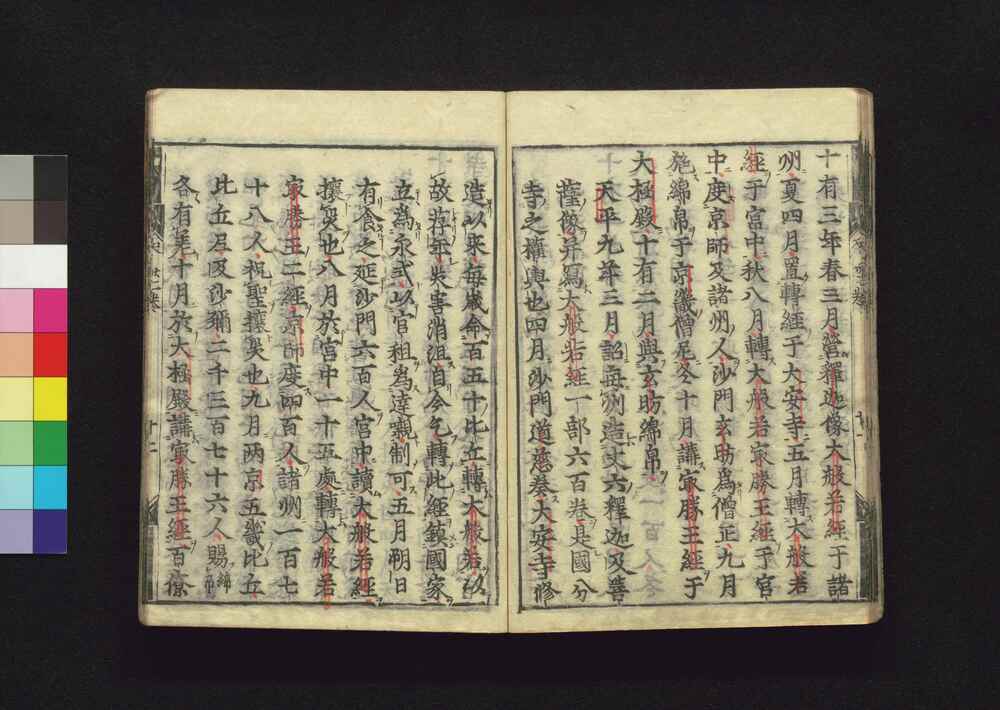 十有三年春三月營釋迦像大般若經于諸
州夏四月置轉經于大安寺五月轉大般若
經于宮中秋八月轉大般若最勝王經于宮
中度京師及諸州人沙門玄昉爲僧正九月
施綿帛于京畿僧尼冬十月講最勝王經于
大極殿十有二月與玄昉綿帛
天平九年三月詔每州造丈六釋迦及菩
薩像并寫大般若經一部六百卷是國分
寺之權輿也四月沙門道慈奏大安寺修
造以來每歲命百五十比丘轉大般若以
故荐年災害消沮自今乞轉此經鎮國家
立爲永式以官租爲達嚫制可五月朔日
有食之延沙門六百人宮中讀大般若經
攘災也八月於宮中一十五處轉大般若
最勝王二經京師度四百人諸州一百七
十八人祝聖攘災也九月兩京五畿比丘
比丘尼及沙彌二千三百七十六人賜綿帛
各有差十月於大極殿講最勝王經百寮
十二